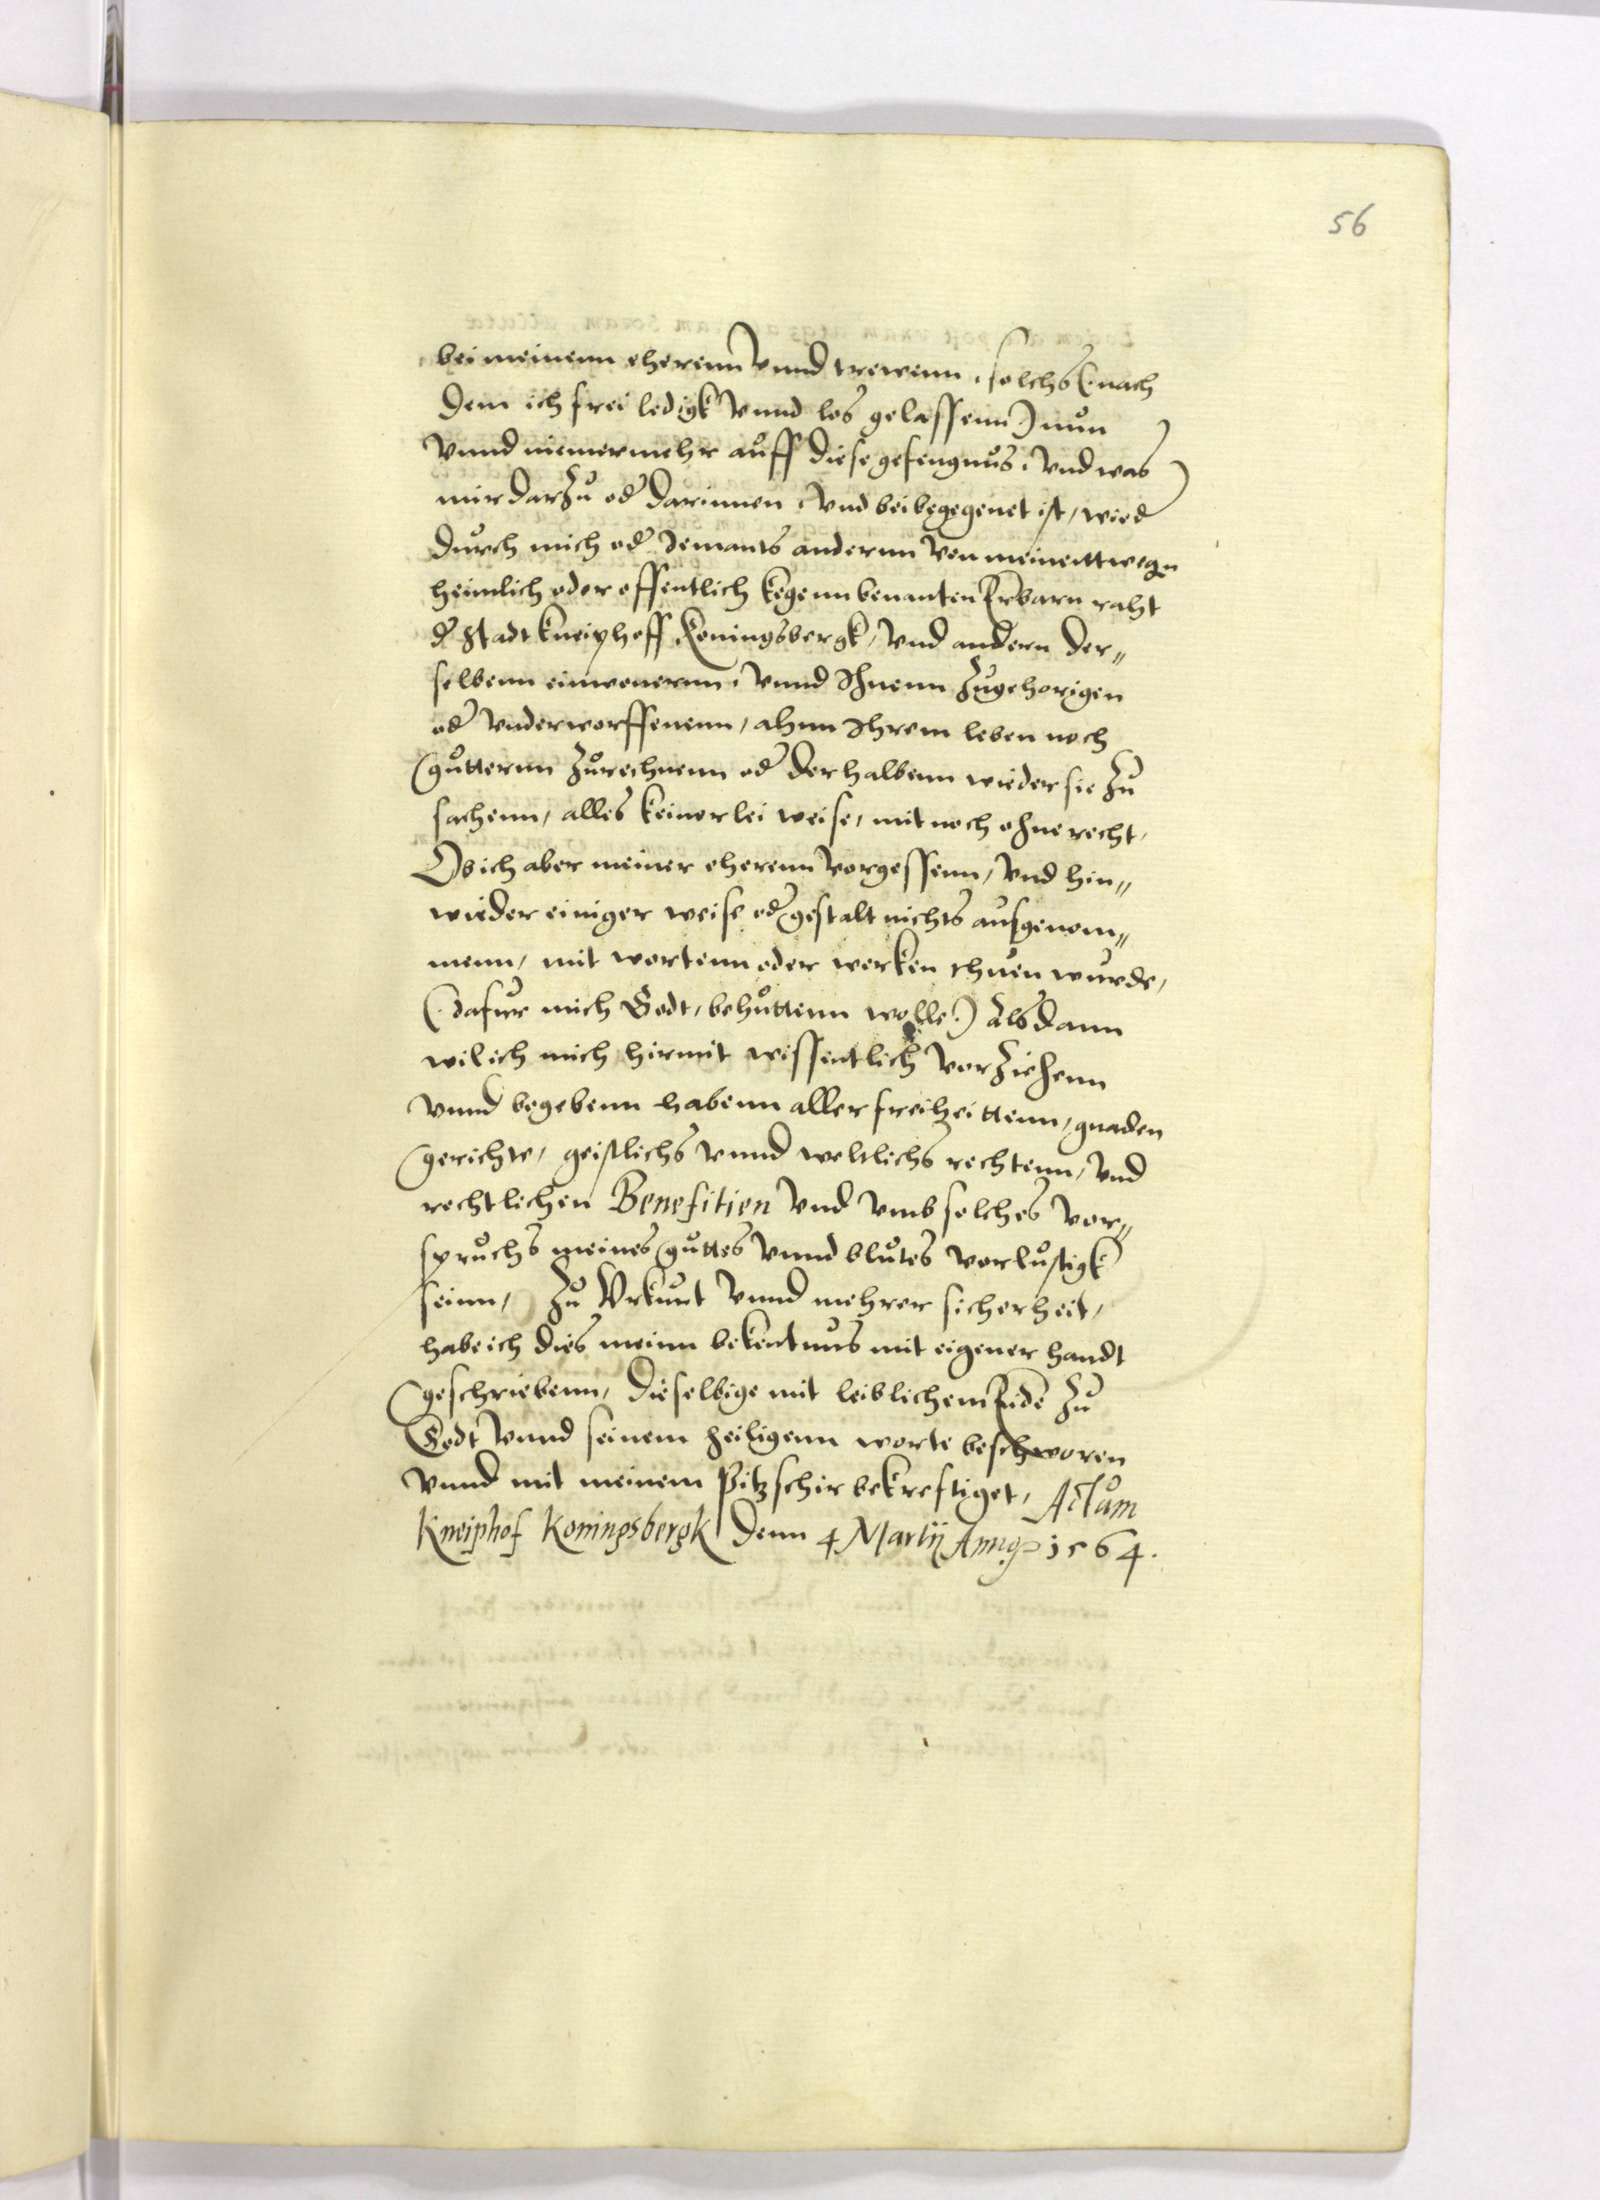 56
bei meinenn eherenn vnnd trewenn, solchs (nach
dem ich frei ledigk vnnd los gelassenn) nun
vnnd niemermehr auff diese gefengnus, vnd was
mir darzu od darinnen, vnd bei begegenet ist, wied
durch mich od Jemants andernn von meinenttwegn
heimlich oder offentlich kegenn benanten Erbarn raht
d Stadt Kneiphoff Koningsbergk, vnd andern der„
selbenn einwonernn, vnnd Ihnenn zugehorigen
od vnderworffenenn, ahnn Ihrem leben noch
gutternn zurechnenn od derhalbenn wieder sie zu
sachenn, alles keinerlei weise, mit noch ohne recht,
Ob ich aber meiner eherenn vorgessenn, vnd hin„
wieder einiger weise od gestalt nichts ausgenom„
menn, mit wortenn oder werken thuen wurde,
(dafur mich Godt, behuttenn wolle) Alsdann
wil ich mich hirmit wissentlich vorziehenn
vnnd begebenn habenn aller freiheittenn, gnaden
gerichte, geistlichs vnnd weltlichs rechtenn, vnd
rechtlichen Benefitien vnd vmb solches vor„
spruchs meines guttes vnnd blutes vorlustigk
seinn, Zu Vrkunt vnnd mehrer sicherheit,
habe ich dies meinn bekentnus mit eigener handt
geschriebenn, dieselbige mit leiblichem Eide zu
Godt vnnd seinem heiligenn worte beschworen
vnnd mit meinem Pitzschir bekreftiget, Actum
Kneiphof Koningsbergk denn 4 Martij Anno 1564.